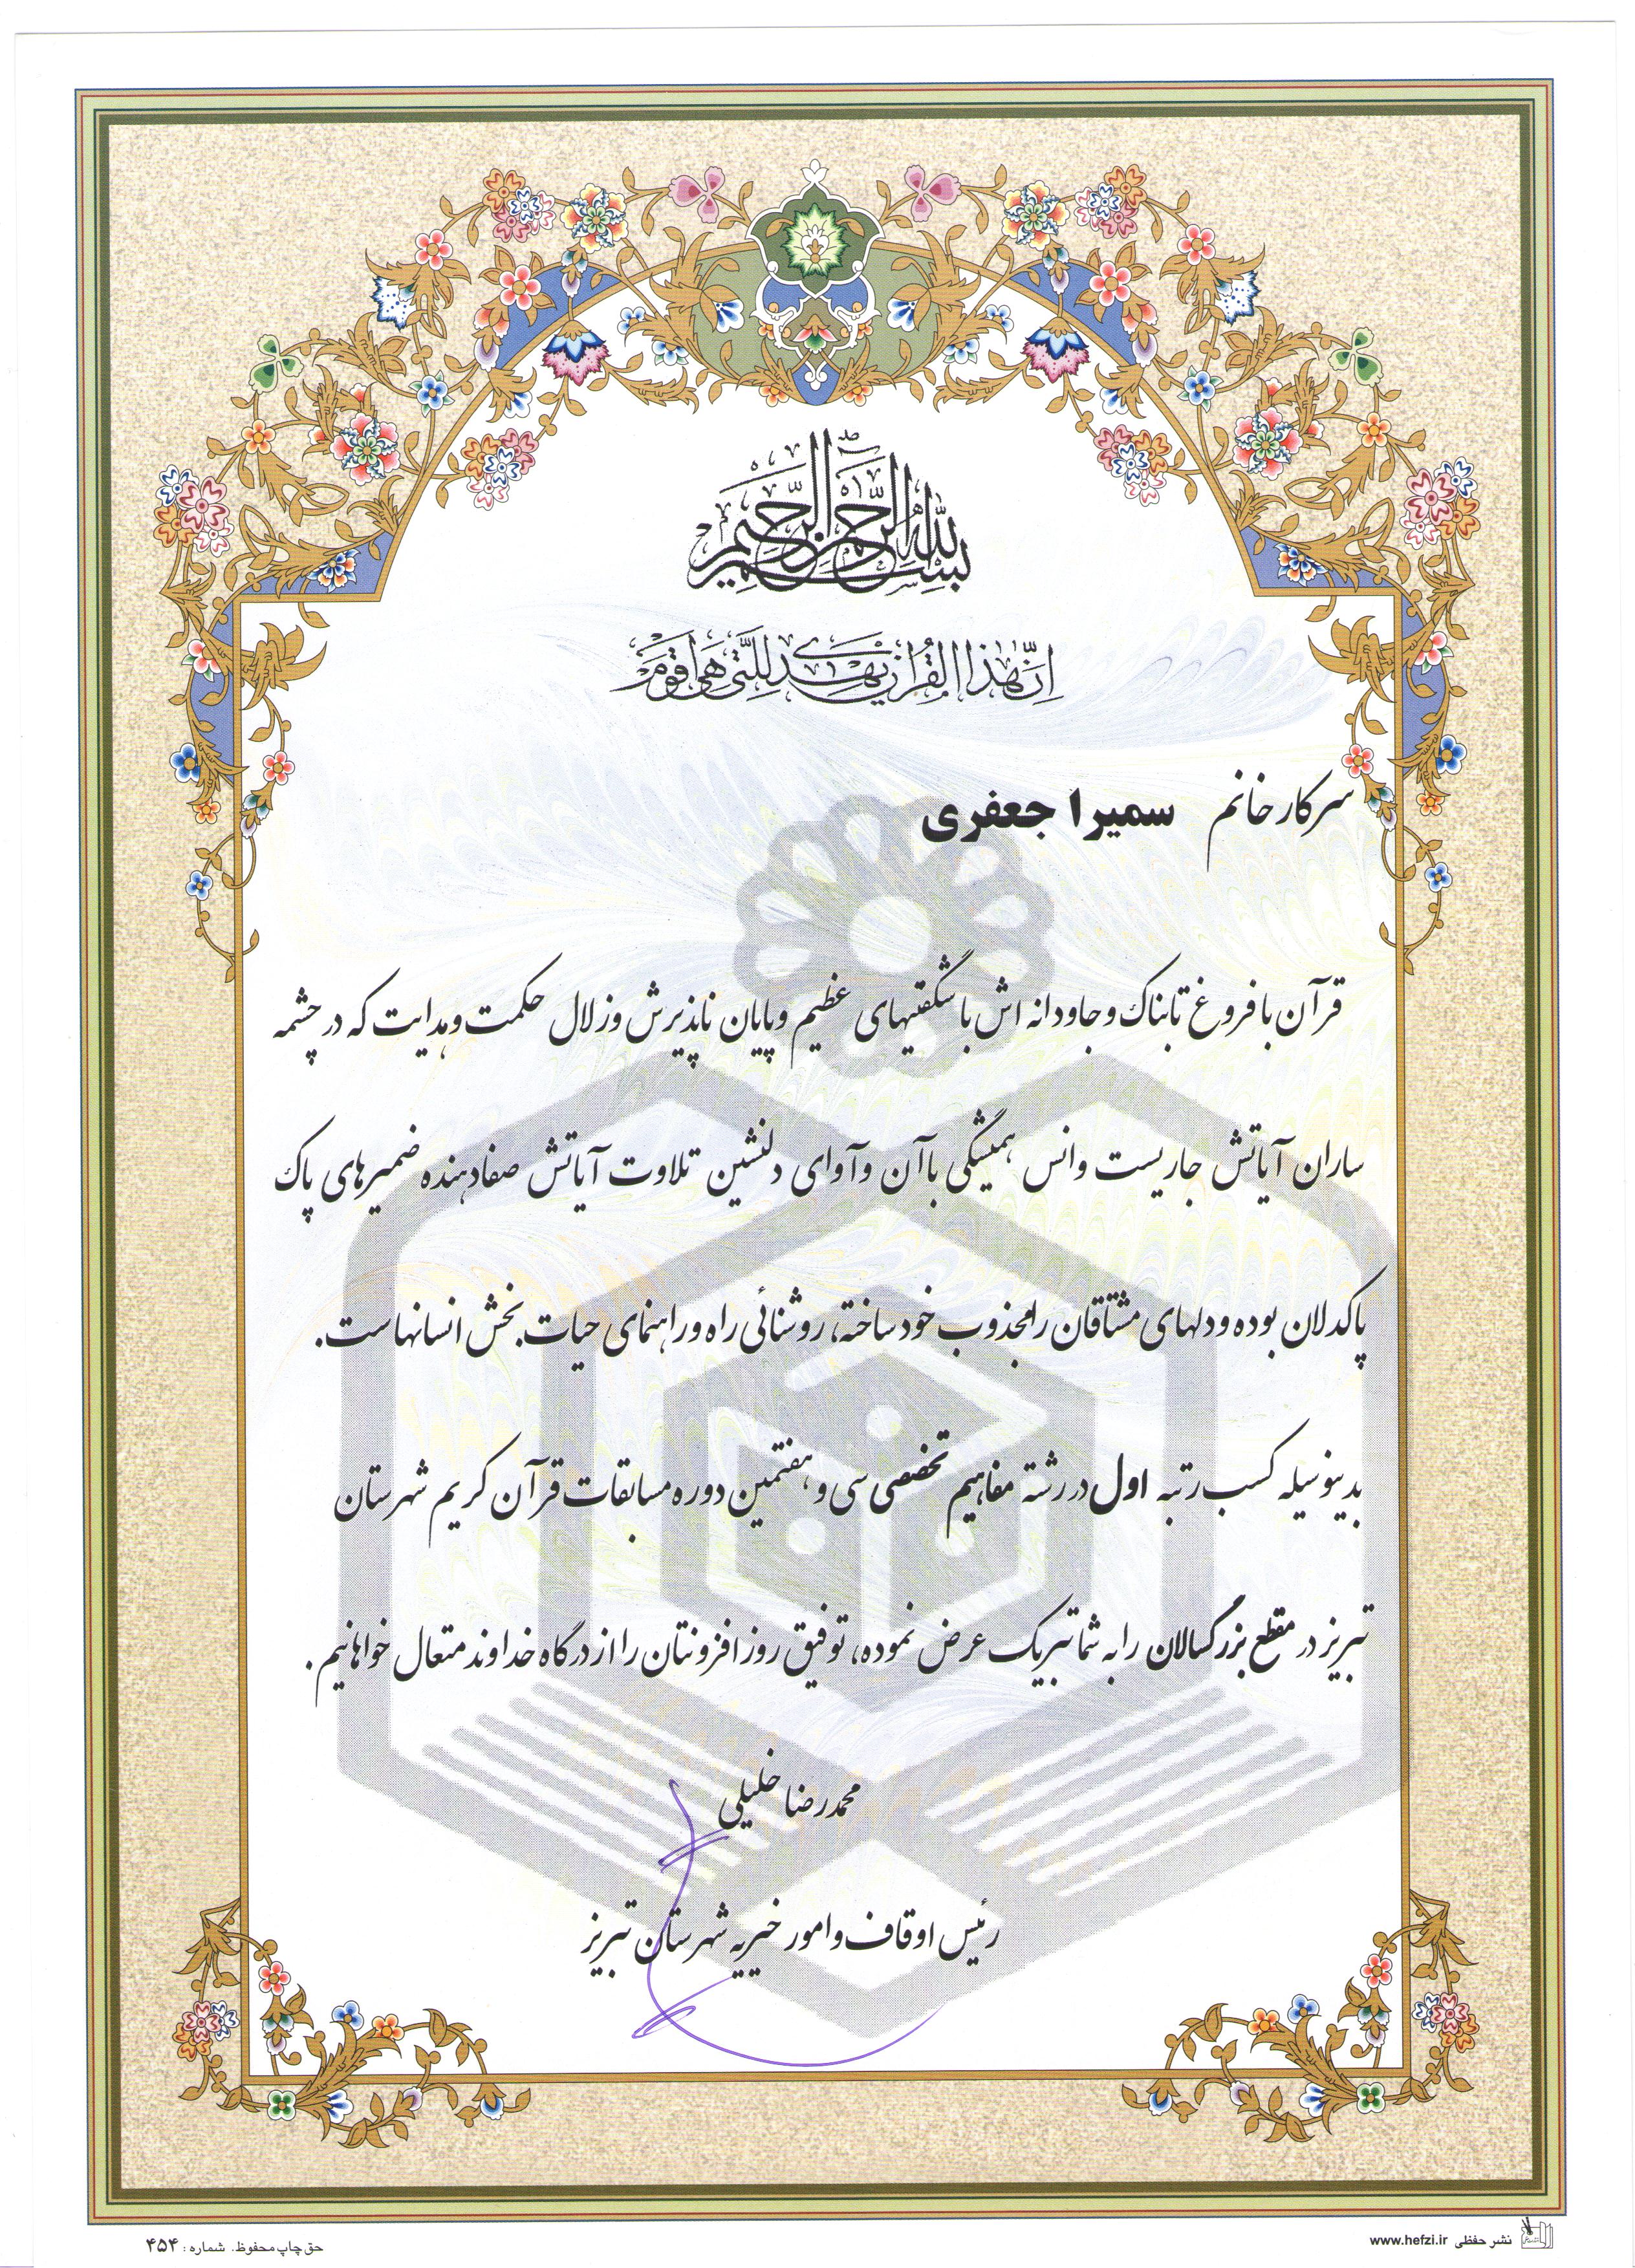 بسم الله الرحمن الرحیم
اِنَّ هٰذَا القُرآنَ یَهْدی لِلَّتی هِیَ اَقوَمُ
سرکار خانم سمیرا جعفری
قرآن با فروغ تابناک و جاودانه اش با شگفتیهای عظیم و پایان ناپذیرش و زلال حکمت و هدایت که در چشمه
ساران آیاتش جاریست و انس همیشگی با آن و آوای دلنشین تلاوت آیاتش صفا دهنده ضمیرهای پاک
پاکدلان بوده و دلهای مشتاقان را مجذوب خود ساخته، روشنائی راه و راهنمای حیات بخش انسانهاست.
بدینوسیله کسب رتبه اول در رشته مفاهیم تخصصی سی و هفتمین دوره مسابقات قرآن کریم شهرستان
تبریز در مقطع بزرگسالان را به شما تبریک عرض نموده، توفیق روز افزونتان را از درگاه خداوند متعال خواهانیم.
محمدرضا خلیلی
رئیس اوقاف و امور خیریه شهرستان تبریز
نشر حفظی www.hefzi.ir
حق چاپ محفوظ. شماره: ۴۵۴